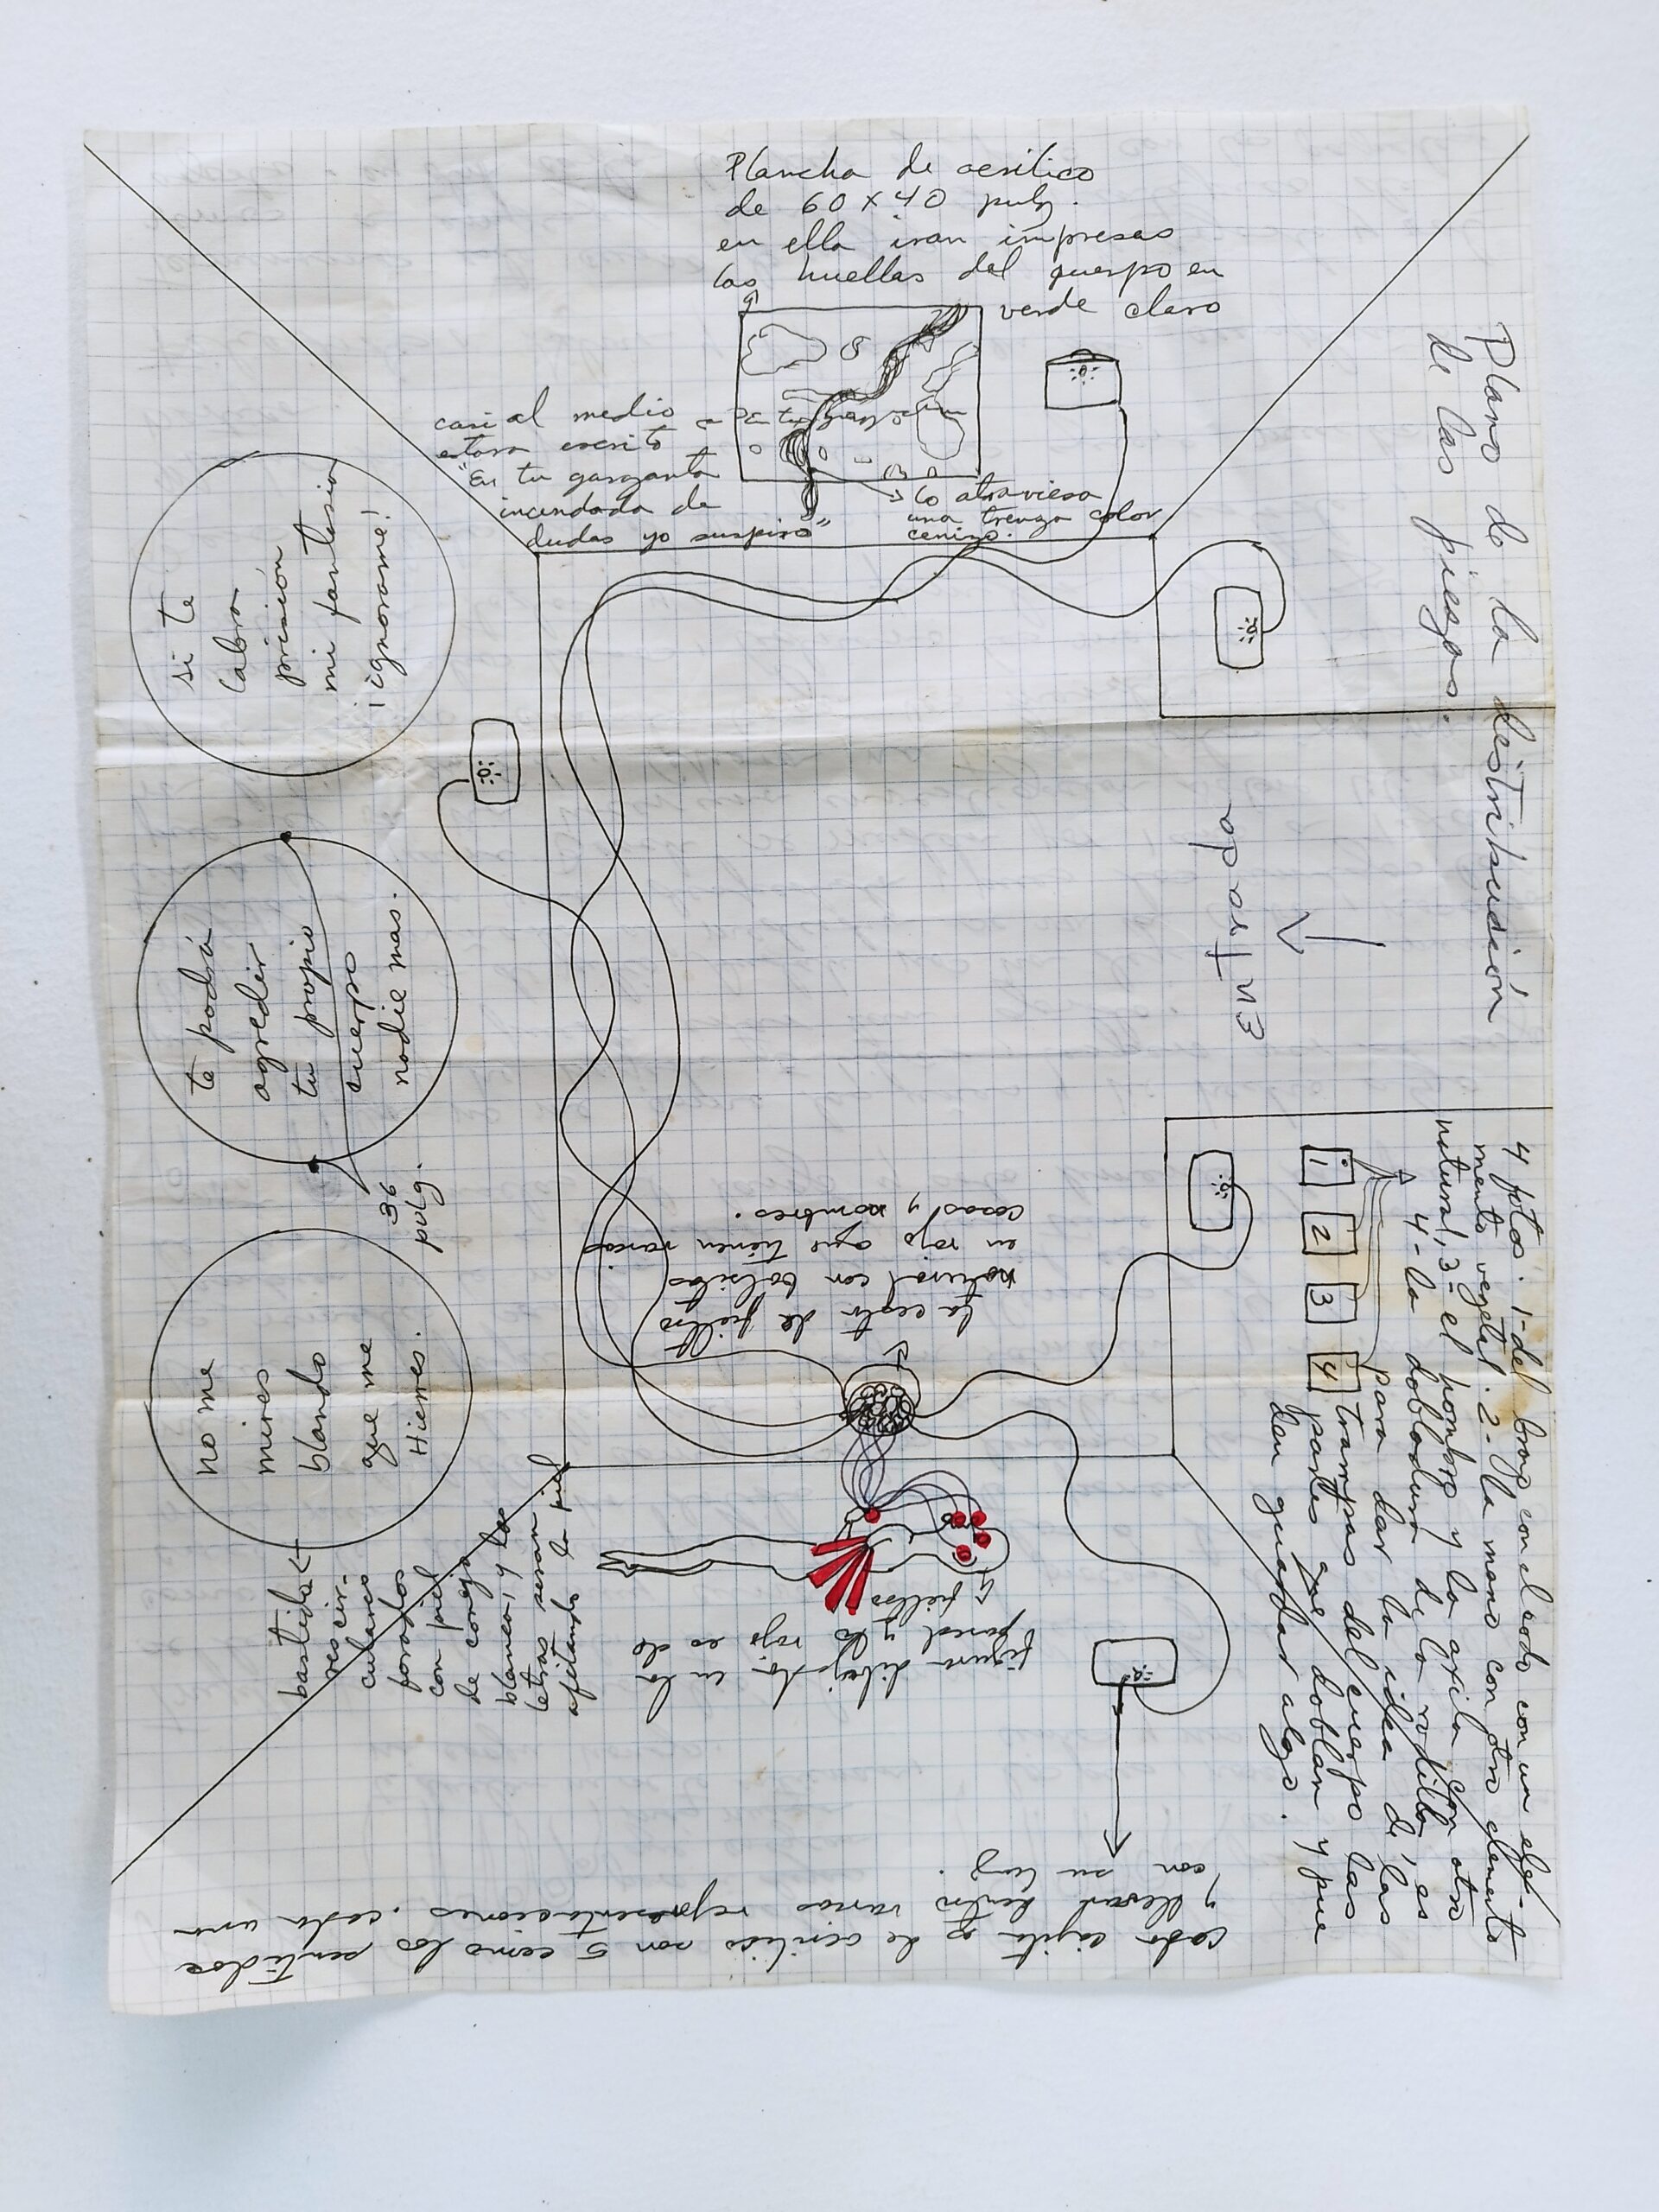 Plano de la distribución
de las piezas.
Plancha de acrílico
de 60 x 40 pulg.
en ella iran impresas
las huellas del cuerpo en
verde claro
casi al medio
estara escrito
"En tu garganta
incendiada de
dudas yo suspiro"
En tu garganta
lo atraviesa
una trenza color
cenizo.
si te
labra
prisión
mi fantasia
¡ignorame!
te podrá
agredir
tu propio
cuerpo
nadie mas.
36
pulg.
no me
mires
blando
que me
Hieres.
bastido
res cir-
culares
forrados
con piel
de conejo
blanca, y las
letras seran
afeitando la piel
Entrada
4 fotos. 1-del brazo con el codo con un ele-
mento vegetal. 2-la mano con otro elemento
natural, 3- el hombro y la axila con otro
4-la dobladura de la rodilla, es
para dar la idea de las
trampas del cuerpo las
partes que doblan y pue
den guardar algo.
1
2
3
4
La cesta de fieltro
natural con bolsitas
en rojo que tienen varias
cosas y nombres.
figura dibujada en la
pared y lo rojo es de
fieltro
cada cajita es de acrilico son 5 como los sentidos
y llevan dentro varias representaciones. cada una
con su luz.